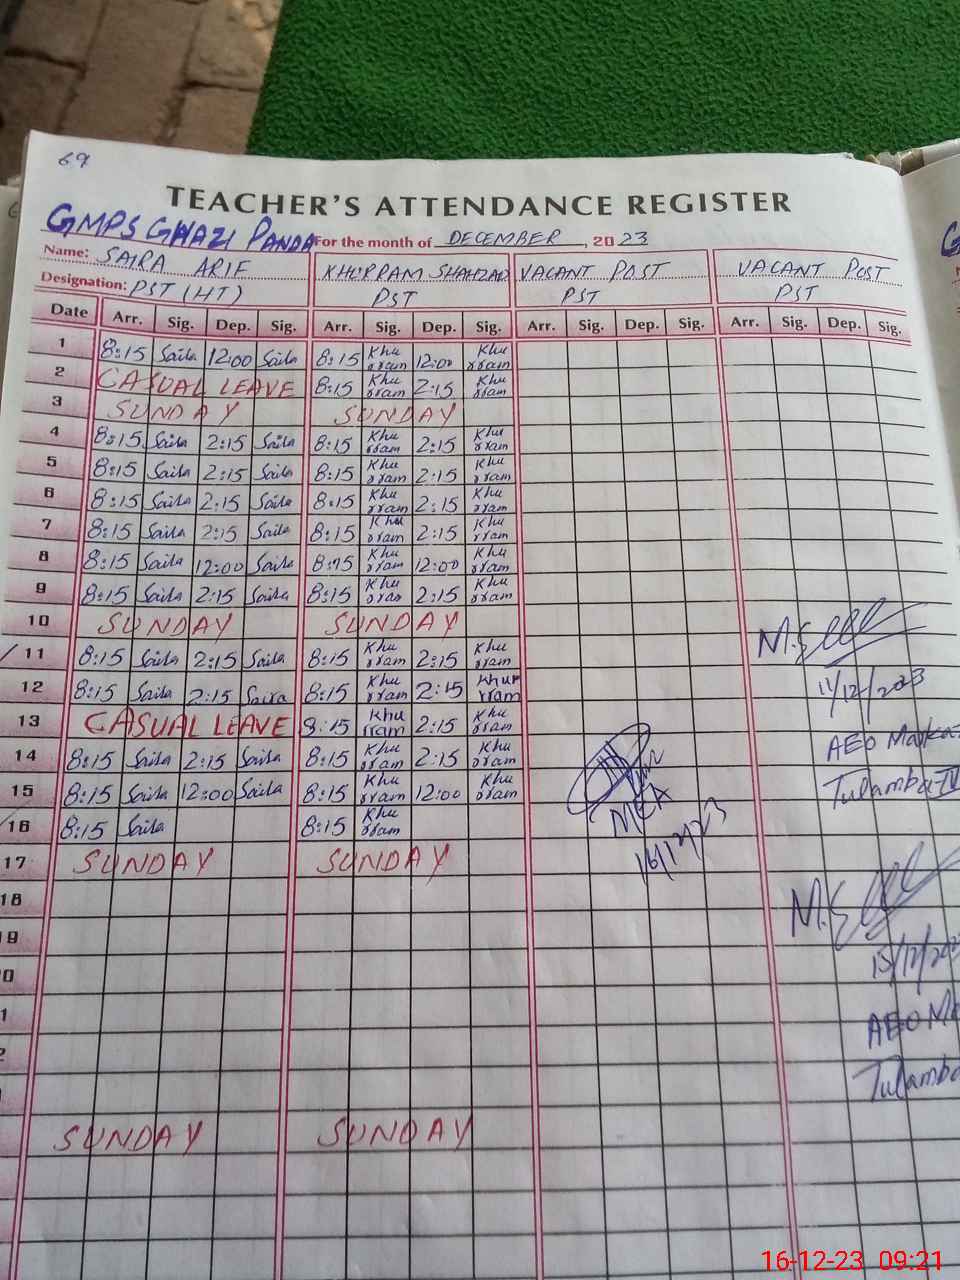 69
TEACHER'S ATTENDANCE REGISTER
GMPS GHAZI PANDA For the month of DECEMBER, 2023
Name: SAIRA ARIF KHURRAM SHAHZAD VACANT POST VACANT POST
Designation: PST (HT) PST PST PST
Date Arr. Sig. Dep. Sig. Arr. Sig. Dep. Sig. Arr. Sig. Dep. Sig. Arr. Sig. Dep. Sig.
1 8:15 Saira 12:00 Saira 8:15 Khurram 12:00 Khurram
2 CASUAL LEAVE 8:15 Khurram 2:15 Khurram
3 SUNDAY SUNDAY
4 8:15 Saira 2:15 Saira 8:15 Khurram 2:15 Khurram
5 8:15 Saira 2:15 Saira 8:15 Khurram 2:15 Khurram
6 8:15 Saira 2:15 Saira 8:15 Khurram 2:15 Khurram
7 8:15 Saira 2:15 Saira 8:15 Khurram 2:15 Khurram
8 8:15 Saira 12:00 Saira 8:15 Khurram 12:00 Khurram
9 8:15 Saira 2:15 Saira 8:15 Khurram 2:15 Khurram
10 SUNDAY SUNDAY
11 8:15 Saira 2:15 Saira 8:15 Khurram 2:15 Khurram
12 8:15 Saira 2:15 Saira 8:15 Khurram 2:15 Khurram
11/12/2023
13 CASUAL LEAVE 8:15 Khurram 2:15 Khurram
14 8:15 Saira 2:15 Saira 8:15 Khurram 2:15 Khurram
AEO Markaz
15 8:15 Saira 12:00 Saira 8:15 Khurram 12:00 Khurram
MEA Tulamba-IV
16 8:15 Saira 8:15 Khurram
16/12/23
17 SUNDAY SUNDAY
18
15/12/202
AEO Ma
Tulamba
SUNDAY SUNDAY
16-12-23 09:21